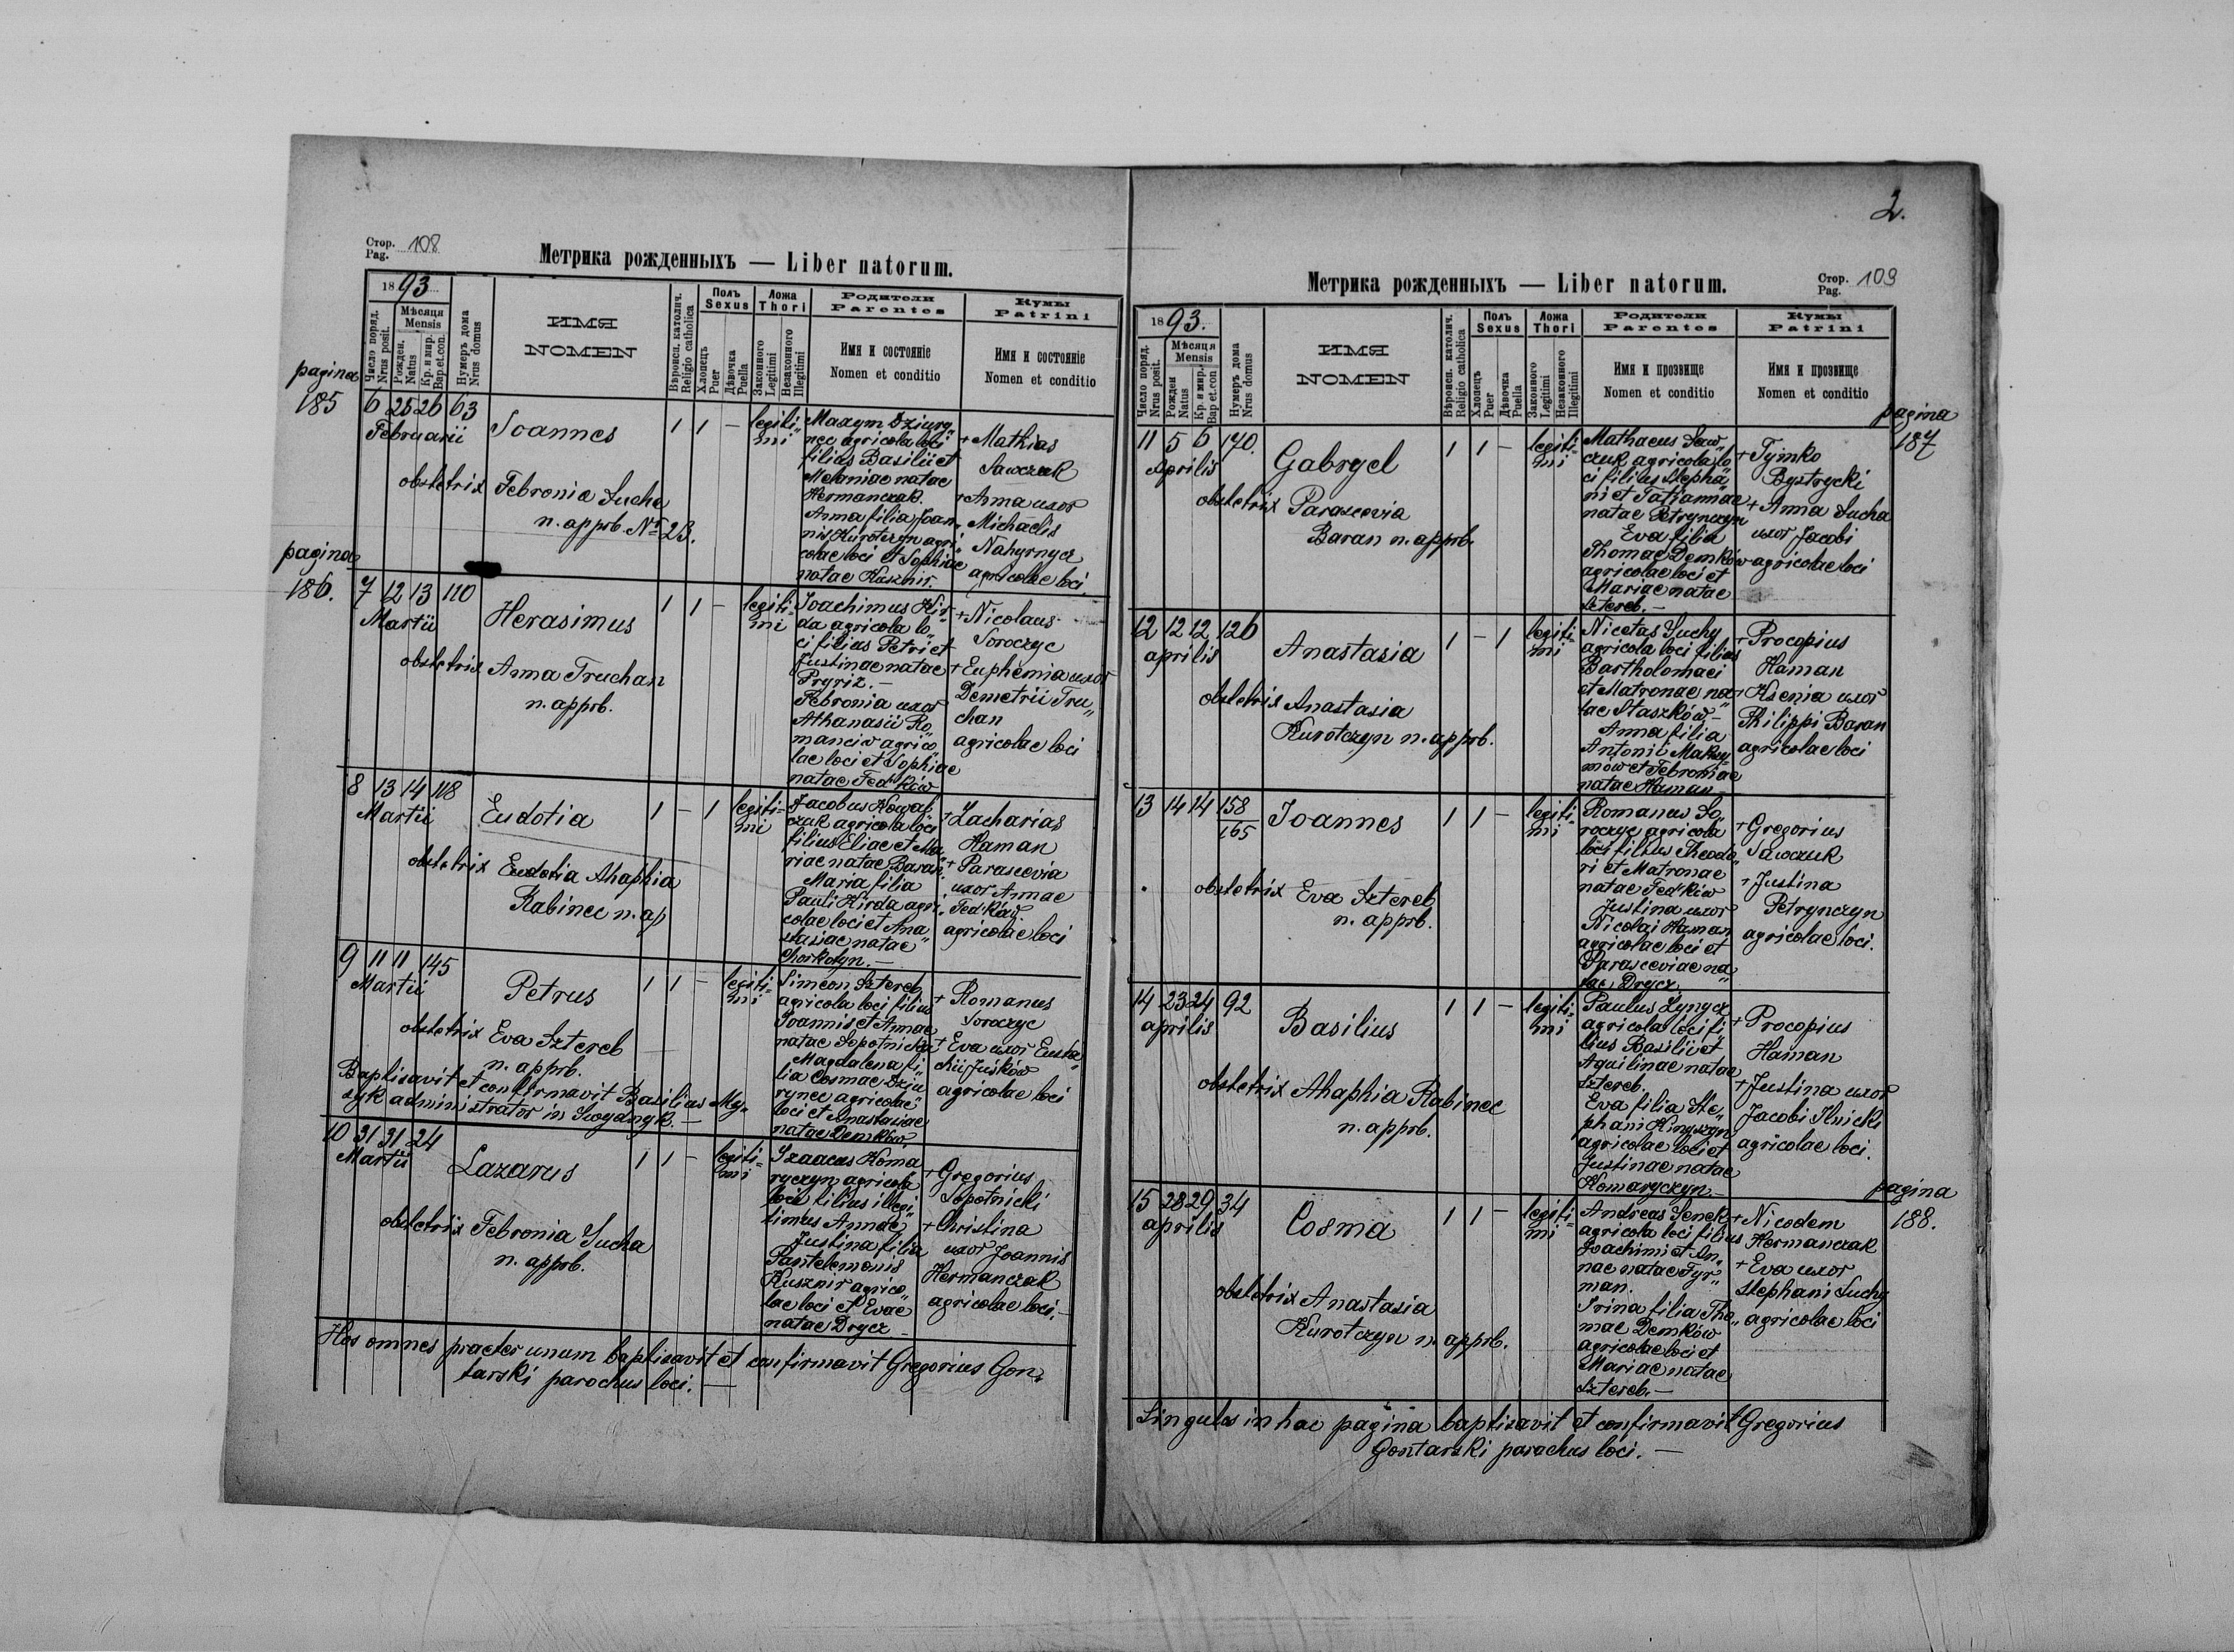 Стор. 108
Pag.
Метрика рожденныхъ — Liber natorum.
1893
Число поряд.
Nrus posit.
Мѣсяця
Mensis
Рожден.
Natus
Кр. и мир.
Bap.et.con.
Нумеръ дома
Nrus domus
ИМЯ
NOMEN
Вѣроисп. католич.
Religio catholica
Полъ
Sexus
Хлопецъ
Puer
Дѣвочка
Puella
Ложа
Thori
Законного
Legitimi
Незаконного
Illegitimi
Родители
Parentes
Имя и состояніе
Nomen et conditio
Кумы
Patrini
Имя и состояніе
Nomen et conditio
pagina
185
6 25 26 63
Februarii
Joannes
1 1 —
legiti„
mi
obstetrix Febronia Sucha
n. apprb. № 23.
Maxym Dziury„
nec agricola loci
filius Basilii et
Melaniae natae
Hermanczak.
Anna filia Joan„
nis Kurotczyn agri„
colae loci et Sophiae
natae Kusznir.
+ Mathias
Sawczuk
+ Anna uxor
Michaelis
Nahyrnycz
agricolae loci.
pagina
186.
7 12 13 110
Martii
Herasimus
1 1 —
legiti„
mi
obstetrix Anna Truchan
n. apprb.
Joachimus Kir„
da agricola lo„
ci filius Petri et
Justinae natae
Pryriz. —
Febronia uxor
Athanasii Ro„
manciv agrico„
lae loci et Sophiae
natae Fedków
+ Nicolaus
Soroczyc
+ Euphemia uxor
Demetrii Tru„
chan
agricolae loci
8 13 14 118
Martii
Eudotia
1 — 1
legiti„
mi
obstetrix Eudotia Ahaphia
Rabinec n. ap
Jacobus Kowal
czuk agricola loci
filius Eliae et Ma„
riae natae Baran.
Maria filia
Pauli Kirda agri„
colae loci et Ana„
stasiae natae
Choskotyn. —
+ Zacharias
Haman
+ Parascevia
uxor Annae
Fedków.
agricolae loci
9 11 11 145
Martii
Petrus
1 1 —
legiti„
mi
obstetrix Eva Sztereb
n. apprb.
Baptisavit et confirmavit Basilius My„
zyk administrator in
Simeon Sztereb
agricola loci filius
Joannis et Annae
natae Sopotnicka
Magdalena fi„
lia Cosmae Dziu
rynec agricolae
loci et Anastasiae
natae Demków.
+ Romanus
Soroczyc
+ Eva uxor Eusta„
chii Juśków
agricolae loci
10 31 31 24
Martii
Lazarus
1 1 —
legiti„
mi
obstetrix Febronia Sucha
n. apprb.
Izaacus Koma
ryczyn agricola
loci filius illegi„
timus Annae
Justina filia
Pantelemonis
Kusznir agrico„
lae loci et Evae
natae Drycz —
+ Gregorius
Sopotnicki
+ Christina
uxor Joannis
Hermanczak
agricolae loci. —
Hos omnes praeter unum baptisavit et confirmavit Gregorius Gon„
tarski parochus loci. —
2.
Метрика рожденныхъ — Liber natorum.
Стор. 109
Pag.
1893.
Число поряд.
Nrus posit.
Мѣсяця
Mensis
Рожден
Natus
Кр. и мир.
Bap et.con
Нумеръ дома
Nrus domus
ИМЯ
NOMEN
Вѣроисп. католич.
Religio catholica
Полъ
Sexus
Хлопецъ
Puer
Дѣвочка
Puella
Ложа
Thori
Законного
Legitimi
Незаконного
Illegitimi
Родители
Parentes
Имя и прозвище
Nomen et conditio
Кумы
Patrini
Имя и прозвище
Nomen et conditio
pagina
187
11 5 6 170.
Aprilis
Gabryel
1 1 —
legiti„
mi
obstetrix Parascevia
Baran n. apprb.
Mathaeus Saw„
czuk agricola lo„
ci filius Stepha„
ni et Tatiannae
natae Petrynczyn
Eva filia
Thomae Demków
agricolae loci et
Mariae natae
Sztereb. —
+ Tymko
Bystrycki
+ Anna Sucha
uxor Jacobi
agricolae loci
12 12 12 126
aprilis
Anastasia
1 — 1
legiti„
mi
obstetrix Anastasia
Kurotczyn n. apprb.
Nicetas Suchy
agricola loci filius
Bartholomaei
et Matronae na„
tae Staszków —
Anna filia
Antonii Maksy„
mów et Febroniae
natae Haman —
+ Procopius
Haman
+ Ksenia uxor
Philippi Baran
agricolae loci
13 14 14 158
165
Joannes
1 1 —
legiti„
mi
obstetrix Eva Sztereb
n. apprb.
Romanus So„
roczyc agricola
loci filius Theodo„
ri et Matronae
natae Fedków
Justina uxor
Nicolai Haman
agricolae loci et
Parasceviae na„
tae Drycz.
+ Gregorius
Sawczuk
+ Justina
Petrynczyn
agricolae loci.
14 23 24 92
aprilis
Basilius
1 1 —
legiti„
mi
obstetrix Ahaphia Rabinec
n. apprb.
Paulus Zynycz
agricola loci fi„
lius Basilii et
Aquilinae natae
Sztereb.
Eva filia Ste„
phani Knyszyn
agricolae loci et
Justinae natae
Komaryczyn —
+ Procopius
Haman
+ Justina uxor
Jacobi Ilnicki
agricolae loci.
pagina
188.
15 28 29 34
aprilis
Cosma
1 1 —
legiti„
mi
obstetrix Anastasia
Kurotczyn n. apprb.
Andreas Senek
agricola loci filius
Joachimi et An„
nae natae Fyr„
man.
Irina filia Tho„
mae Demków
agricolae loci et
Mariae natae
Sztereb. —
+ Nicodem
Hermanczak
+ Eva uxor
Stephani Suchy
agricolae loci
Singulos in hac pagina baptisavit et confirmavit Gregorius
Gontarski parochus loci. —